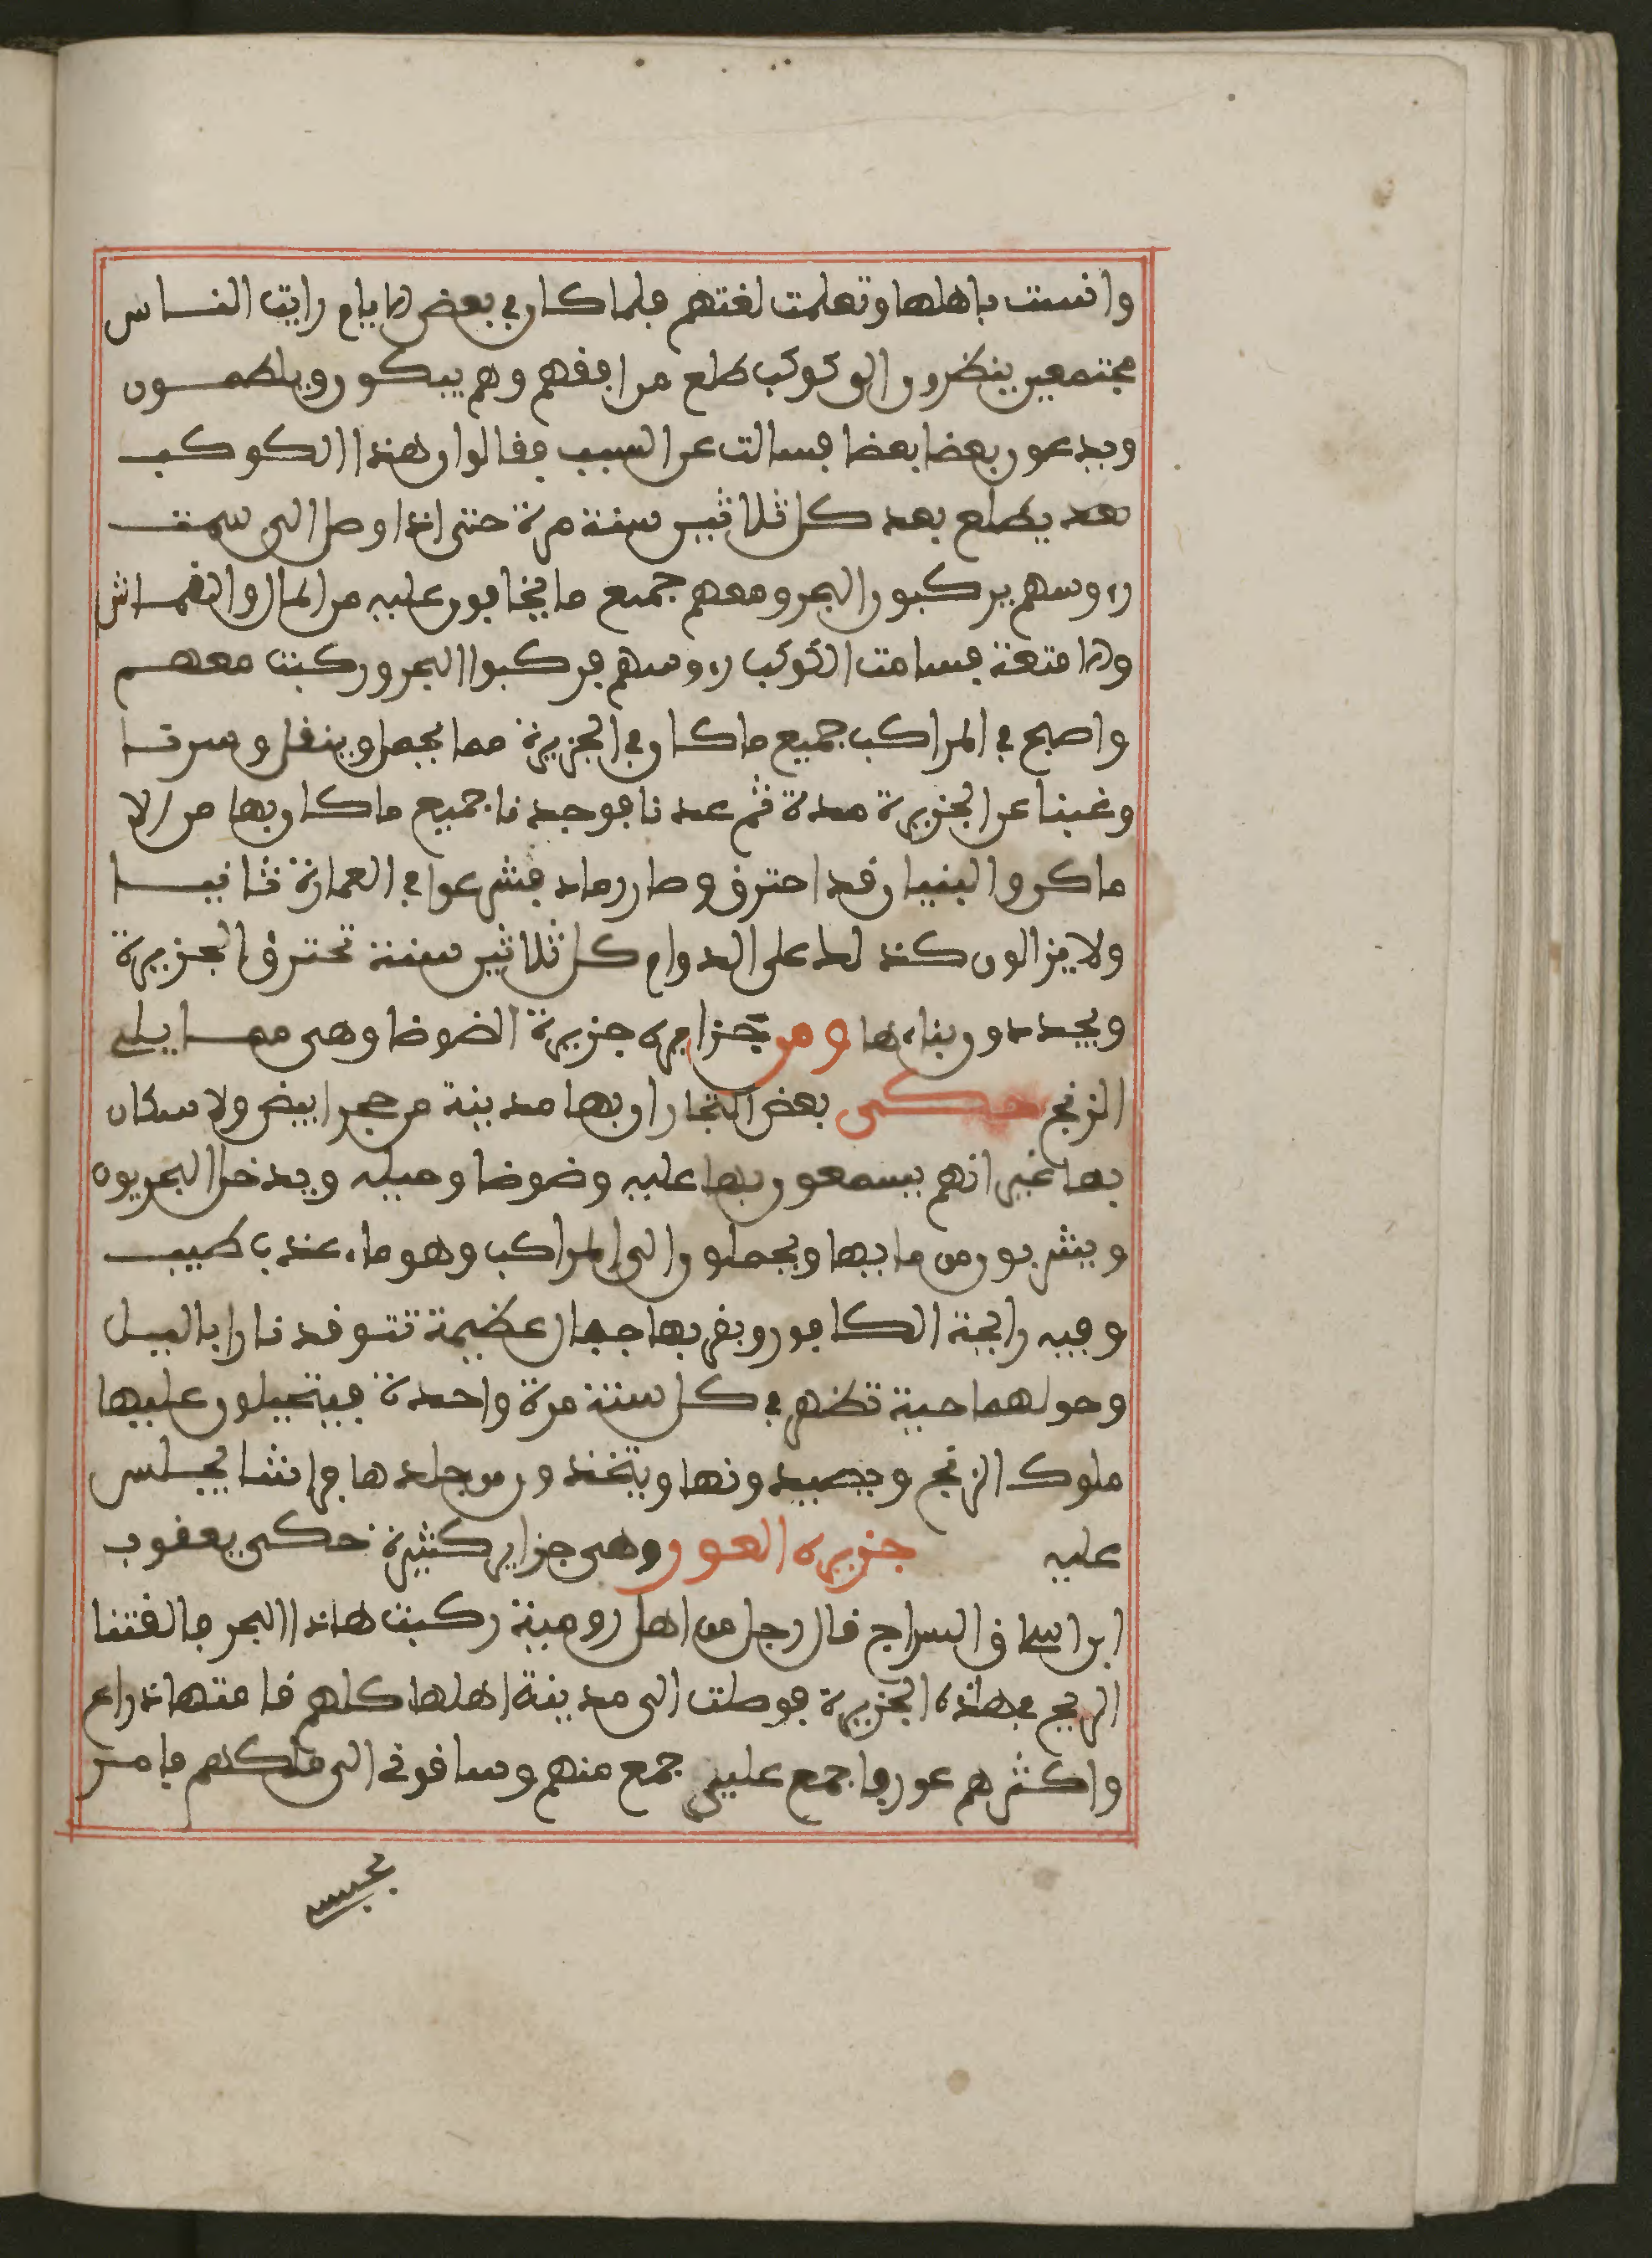 وانست باهلها وتعلمت لغتهم فلما كان في بعض الايام رايت الناس
مجتمعين ينظرون الى كوكب طلع من افقهم وهم يبكون ويلطمون
ويدعون بعضا بعضا فسالت عن السبب فقالوا ان هذا الكوكب
يطلع بعد كل ثلاثين سنة مرة حتى اذا وصل الى سمت
رءوسهم يركبون البحر ومعهم جميع ما يخافون عليه من المال والقماش
والامتعة فسامت الكوكب رءوسهم فركبوا البحر وركبت معهم
واصبح في المراكب جميع ما كان في الجزيرة مما يحمل وينقل وسرنا
وغبنا عن الجزيرة مدة ثم عدنا فوجدنا جميع ما كان بها من الا
ماكن والبنيان قد احترق وصار رماد فشرعوا في العمارة ثانيا
ولا يزالون كذلك على الدوام كل ثلاثين سنة تحترق الجزيرة
ويجددون بناءها ومن جزايره جزيرة الضوضا وهى مما يلى
الزنج حكى بعض التجار ان بها مدينة من حجر ابيض ولا سكان
بها غير انهم يسمعون بها علبه وضوضا وحيله ويدخل البحريون
ويشربون من مايها ويحملون الى المراكب وهو ماء عذب طيب
وفيه رايحة الكافور وبقربها جبال عظيمة تتوقد نارا باليل
وحولهما حية تظهر في كل سنة مرة واحدة فيتحيلون عليها
ملوك الزنج ويصيدونها ويتخذون من جلدها فراشا يجلس
عليه جزيره العور وهى جزاير كثيرة حكى يعقوب
ابن اسحاق السراج قال رجل من اهل رومية ركبت هاذا البحر فالقتنا
الريح في هاذه الجزيرة فوصلت الى مدينة اهلها كلهم قامتها ذراع
واكثرهم عور فاجمع عليى جمع منهم وساقونى الى ملكهم فامر
بحبس